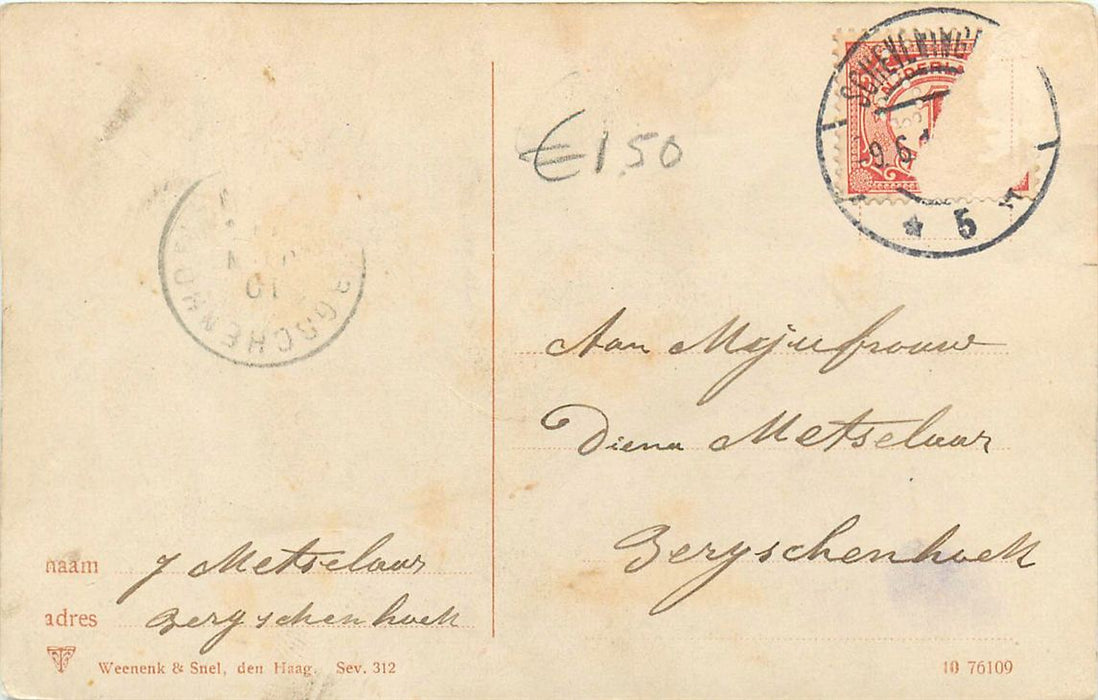 € 1,50
SCHEVENING
NEDERL
-9.6.1
* 5
RGSCHENHO
10
Aan Mejufrouw
Diena Metselaar
Bergschenhoek
naam J Metselaar
adres Bergschenhoek
Weenenk & Snel, den Haag. Sev. 312
10 76109